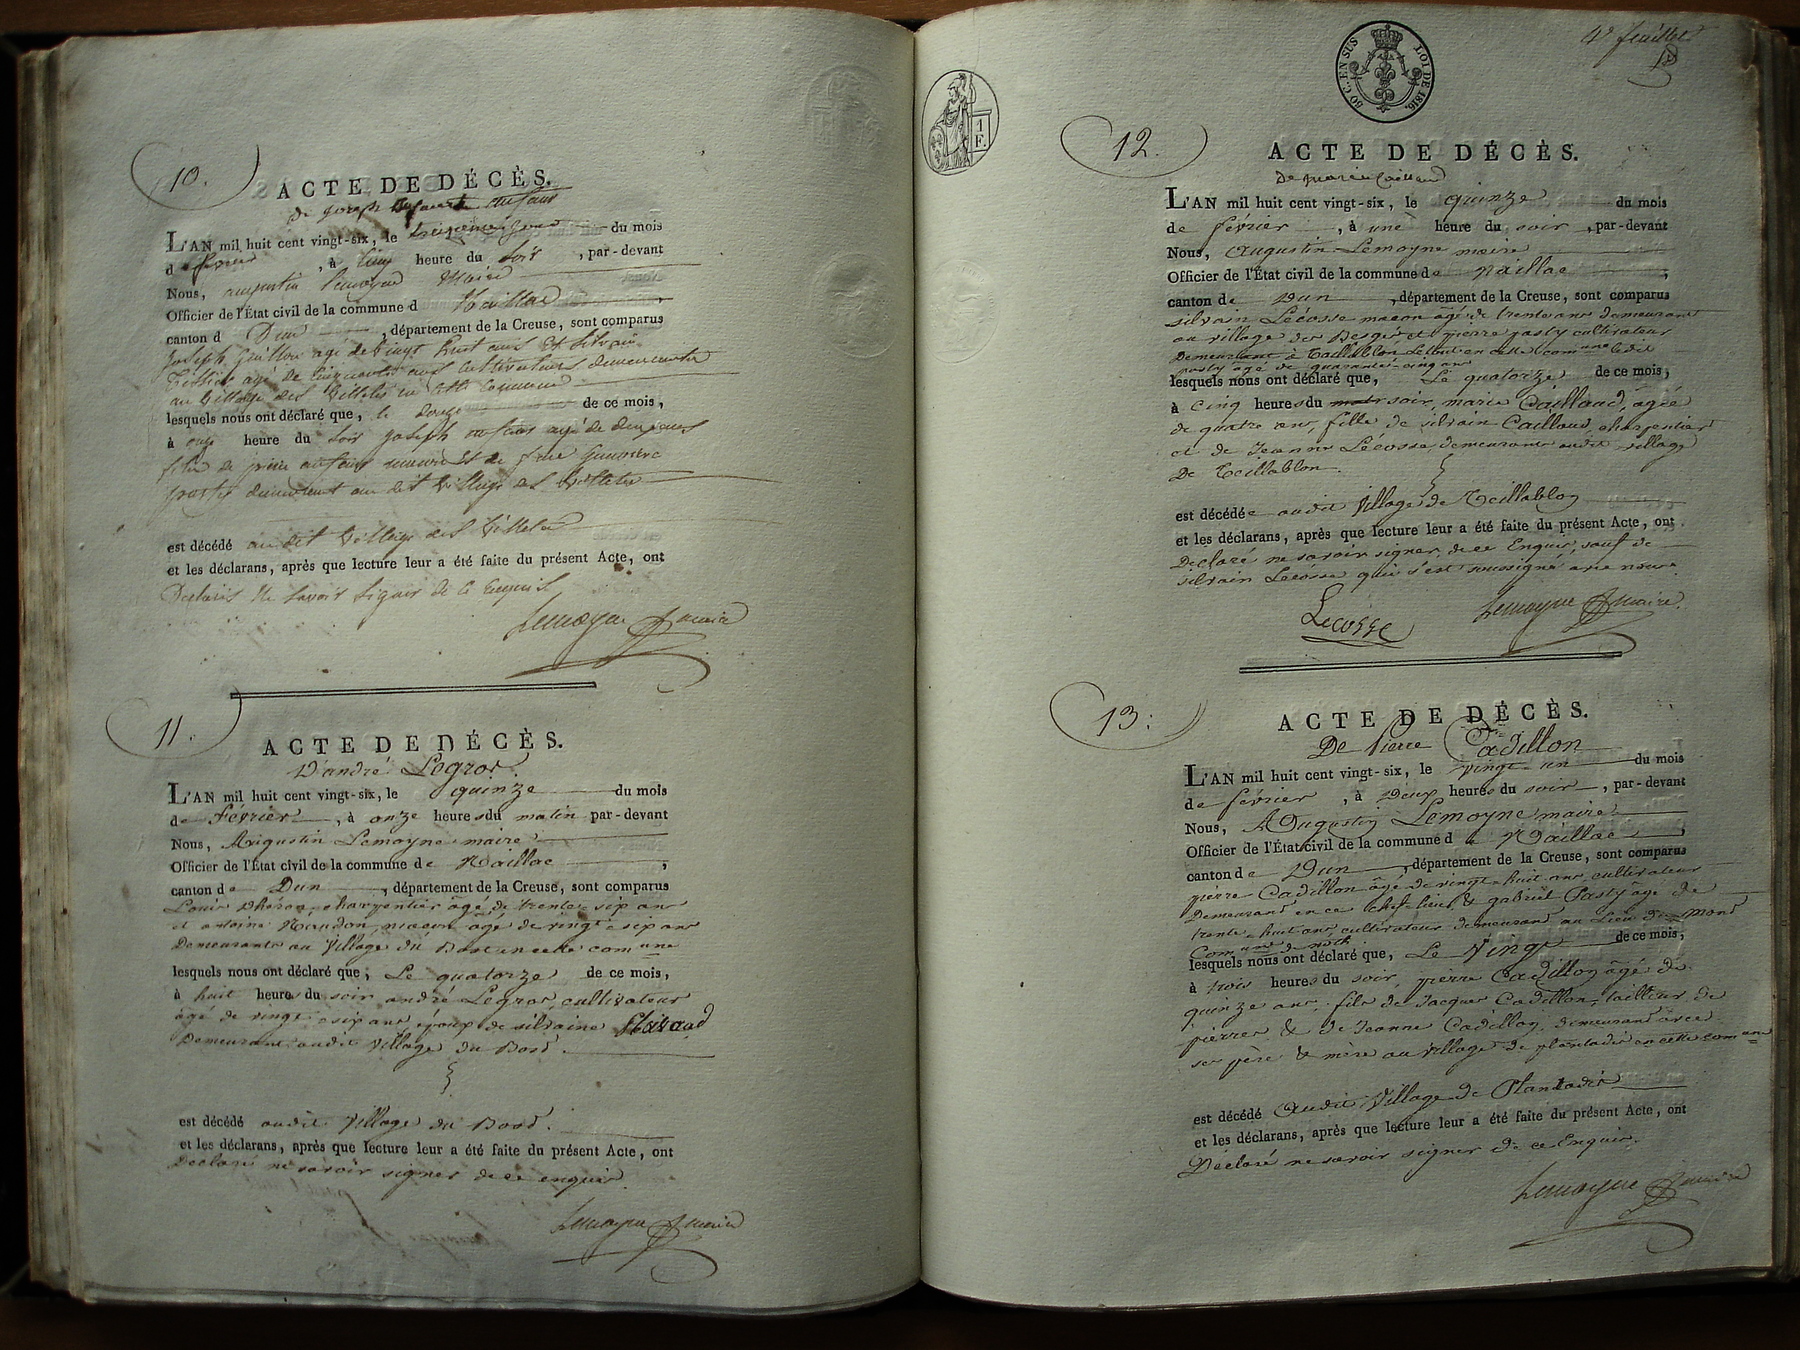 10.
ACTE DE DÉCÈS.
De joseph aufaure
L'AN mil huit cent vingt-six, le treizieme jour du mois
de fevrier, à cinq heure du soir, par-devant
Nous, augustin lemoyne Maire
Officier de l'État civil de la commune d Naillac
canton d Dun, département de la Creuse, sont comparus
joseph Guillon agé de vingt huit ans et silvain
agé de cinquante ans cultivateurs demeurants
au village des Villetes en cette commune
lesquels nous ont déclaré que, le douze de ce mois,
à onze heure du soir joseph aufaure agé de deux ans
fils de
demeurant au dit village des Villetes
est décédé au dit village des Villetes
et les déclarans, après que lecture leur a été faite du présent Acte, ont
Déclaré ne savoir signer de ce enquis
Lemoyne maire
11.
ACTE DE DÉCÈS.
D'andré Legros.
L'AN mil huit cent vingt-six, le quinze du mois
de Février, à onze heures du matin par-devant
Nous, Augustin Lemoyne maire
Officier de l'État civil de la commune de Naillac,
canton de Dun, département de la Creuse, sont comparus
Louis charpentier âgé de trente-six ans
et antoine Naudon, macon âgé de vingt-six ans
Demeurants au village du Bost en cette commune
lesquels nous ont déclaré que, Le quatorze de ce mois,
à huit heures du soir andré Legros, cultivateur
âgé de vingt-six ans, époux de silvaine
Demeurant audit village du Bost.
est décédé audit village du Bost.
et les déclarans, après que lecture leur a été faite du présent Acte, ont
Déclaré ne savoir signer de ce enquis
Lemoyne maire
1 F.
50 C. EN SUS LOI DE 1816
4e feuillet
12.
ACTE DE DÉCÈS.
De marie Caillaud
L'AN mil huit cent vingt-six, le quinze du mois
de février, à une heure du soir, par-devant
Nous, Augustin Lemoyne maire
Officier de l'État civil de la commune de Naillac,
canton de Dun, département de la Creuse, sont comparus
silvain Lécosse macon âgé de trente ans demeurant
au village des Besges et pierre pasty cultivateur
Demeurant à Teillablon le tout en cette commune ledit
pasty âgé de quarante-cinq ans
lesquels nous ont déclaré que, Le quatorze de ce mois,
à Cinq heures du soir, marie Caillaud, âgée
de quatre ans, fille de silvain Caillaud charpentier
et de Jeanne Lécosse, demeurants audit village
De Teillablon.
est décédée audit village de Teillablon
et les déclarans, après que lecture leur a été faite du présent Acte, ont
Déclaré ne savoir signer, de ce Enquis, sauf de
silvain Lecosse qui s'est soussigné avec nous
Lecosse
Lemoyne maire
13.
ACTE DE DÉCÈS.
De Pierre Cadillon
L'AN mil huit cent vingt-six, le vingt-un du mois
de février, à Deux heures du soir, par-devant
Nous, Augustin Lemoyne maire
Officier de l'État civil de la commune de Naillac
canton de Dun, département de la Creuse, sont comparus
pierre Cadillon âgé de vingt-huit ans, cultivateur
Demeurant en ce chef-lieu & gabriel Pasty âgé de
trente-huit ans, cultivateur demeurant au Lieu de mont
Commune de noth
lesquels nous ont déclaré que, Le Vingt de ce mois,
à trois heures du soir, pierre Cadillon âgé de
quinze ans, fils de Jacques Cadillon, tailleur de
pierres & de Jeanne Cadillon, demeurant avec
ses père & mère au village de plantadis en cette commune
est décédé audit village de Plantadis
et les déclarans, après que lecture leur a été faite du présent Acte, ont
Déclaré ne savoir signer de ce Enquis.
Lemoyne maire